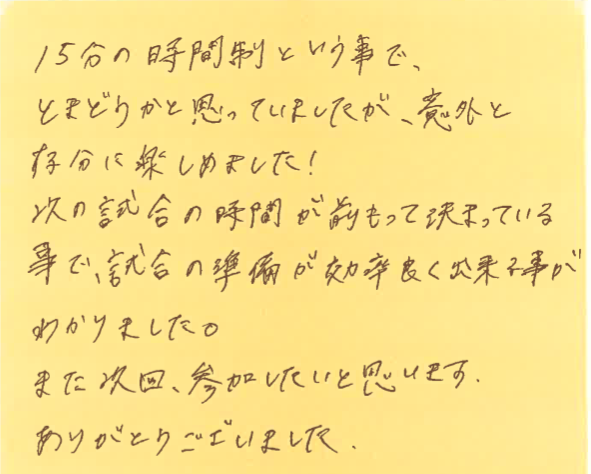 15分の時間制という事で、
とまどうかと思っていましたが、意外と
存分に楽しめました!
次の試合の時間が前もって決まっている
事で、試合の準備が効率良く出来る事が
わかりました。
また次回、参加したいと思います.
ありがとうございました.